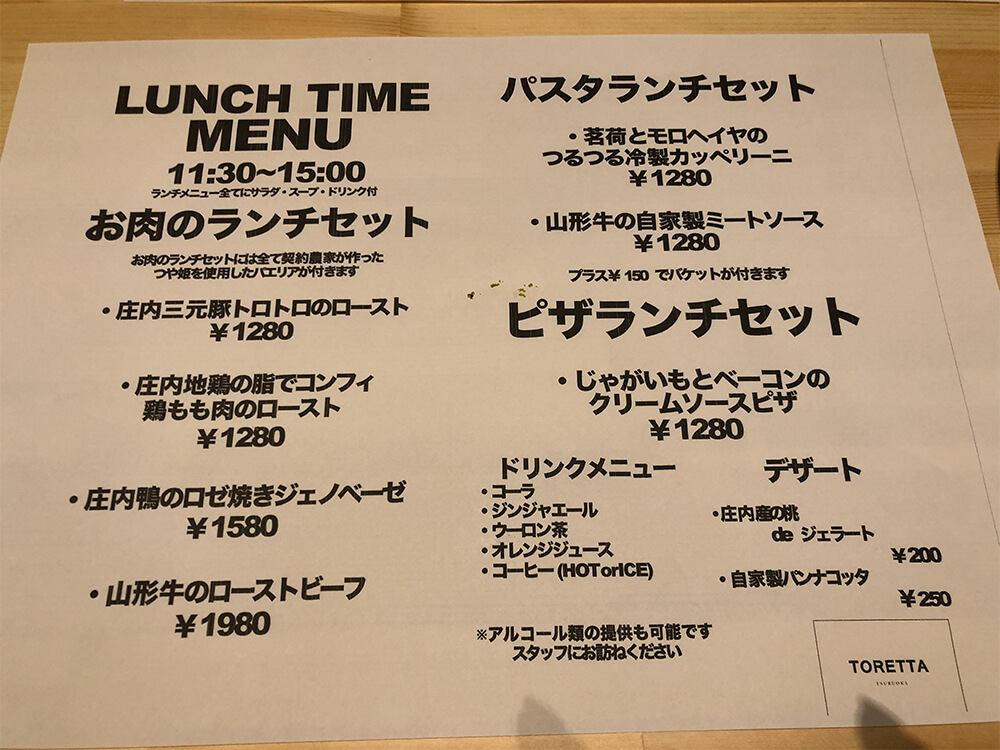 LUNCH TIME
MENU
11:30~15:00
ランチメニュー全てにサラダ・スープ・ドリンク付
お肉のランチセット
お肉のランチセットには全て契約農家が作った
つや姫を使用したパエリアが付きます
・庄内三元豚トロトロのロースト
¥1280
・庄内地鶏の脂でコンフィ
鶏もも肉のロースト
¥1280
・庄内鴨のロゼ焼きジェノベーゼ
¥1580
・山形牛のローストビーフ
¥1980
パスタランチセット
・茗荷とモロヘイヤの
つるつる冷製カッペリーニ
¥1280
・山形牛の自家製ミートソース
¥1280
プラス¥150 でバケットが付きます
ピザランチセット
・じゃがいもとベーコンの
クリームソースピザ
¥1280
ドリンクメニュー
・コーラ
・ジンジャエール
・ウーロン茶
・オレンジジュース
・コーヒー(HOTorICE)
デザート
・庄内産の桃
de ジェラート
¥200
・自家製パンナコッタ
¥250
※アルコール類の提供も可能です
スタッフにお訪ねください
TORETTA
TSURUOKA